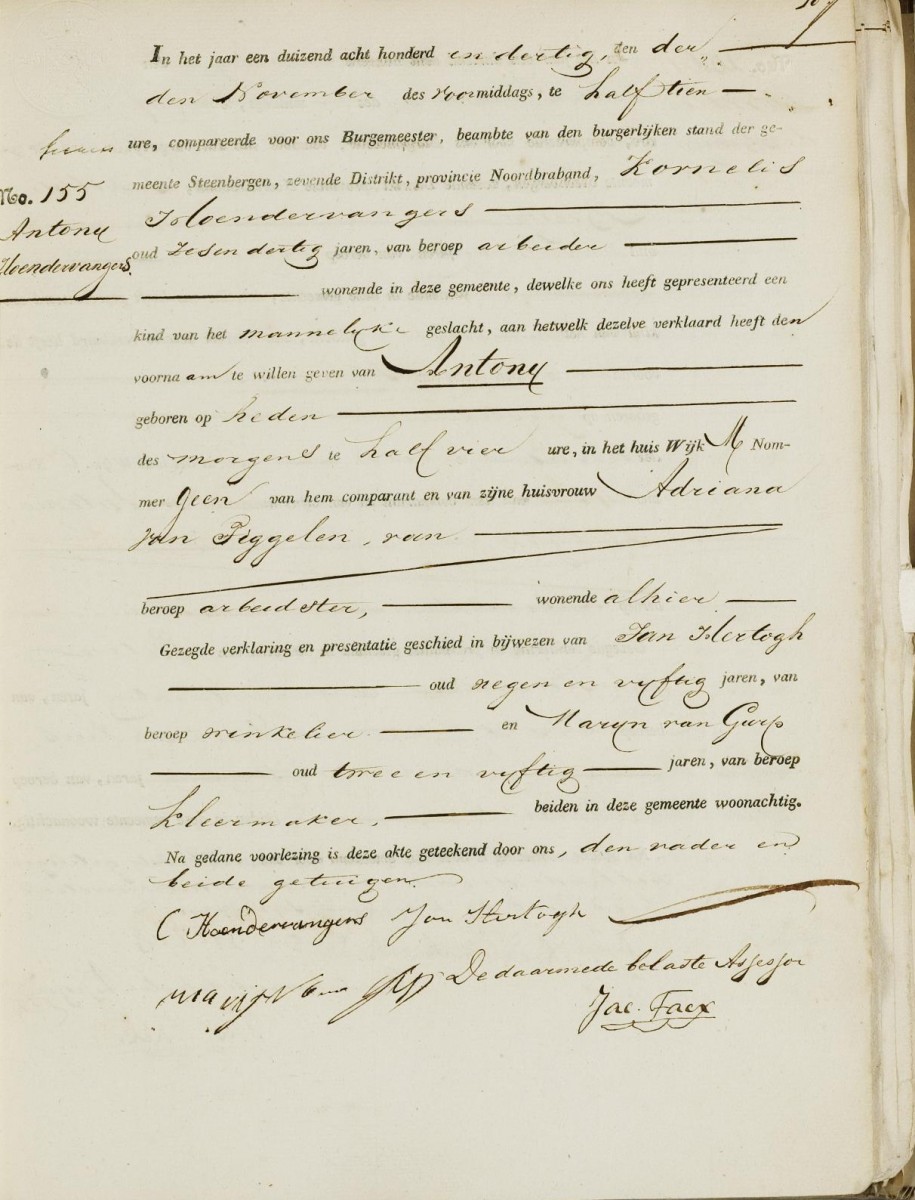 In het jaar een duizend acht honderd en dertig, den der
den November des voormiddags, te half tien
ure, compareerde voor ons Burgemeester, beambte van den burgerlijken stand der ge-
No. 155
Antony
Hoendervangers.
meente Steenbergen, zevende Distrikt, provincie Noordbraband, Kornelis
Hoendervangers
oud Zesendertig jaren, van beroep arbeider
wonende in deze gemeente, dewelke ons heeft gepresenteerd een
kind van het mannelyke geslacht, aan hetwelk dezelve verklaard heeft den
voornaam te willen geven van Antony
geboren op heden
des morgens te half vier ure, in het huis Wijk M Nom-
mer Geen van hem comparant en van zijne huisvrouw Adriana
van Piggelen, van
beroep arbeidster, wonende alhier
Gezegde verklaring en presentatie geschied in bijwezen van Jan Hertogh
oud negen en vyftig jaren, van
beroep winkelier en Maryn van Gurp
oud twee en vyftig jaren, van beroep
kleermaker, beiden in deze gemeente woonachtig.
Na gedane voorlezing is deze akte geteekend door ons, den vader en
beide getuigen.
C Hoendervangers Jan Hertogh
De daarmede belaste Assessor
Jac. Faex